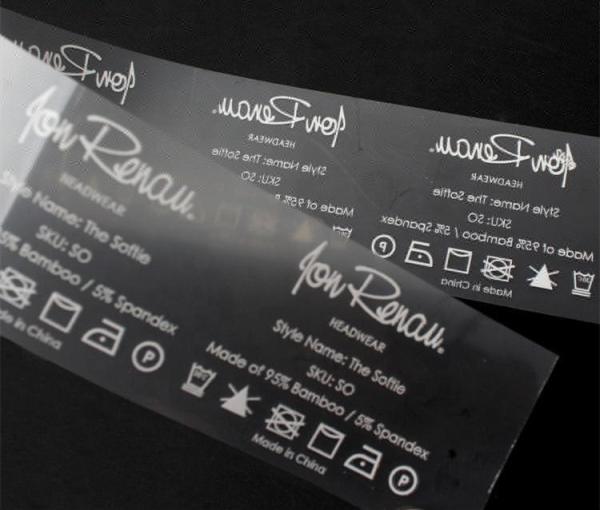 Jon Renau
Jon Renau.
HEADWEAR
Style Name: The Softie
SKU: SO
Made of 95%
Jon Renau.
HEADWEAR
Style Name: The Softie
SKU: SO
Made of 95% Bamboo / 5% Spandex
P
Made in China
Jon Renau.
HEADWEAR
Style Name: The Softie
SKU: SO
5% Bamboo / 5% Spandex
P
de in China
Jon Renau.
HEADWEAR
Style Name: The Softie
SKU: SO
Made of 95% Bamboo / 5% Spandex
P
Made in China